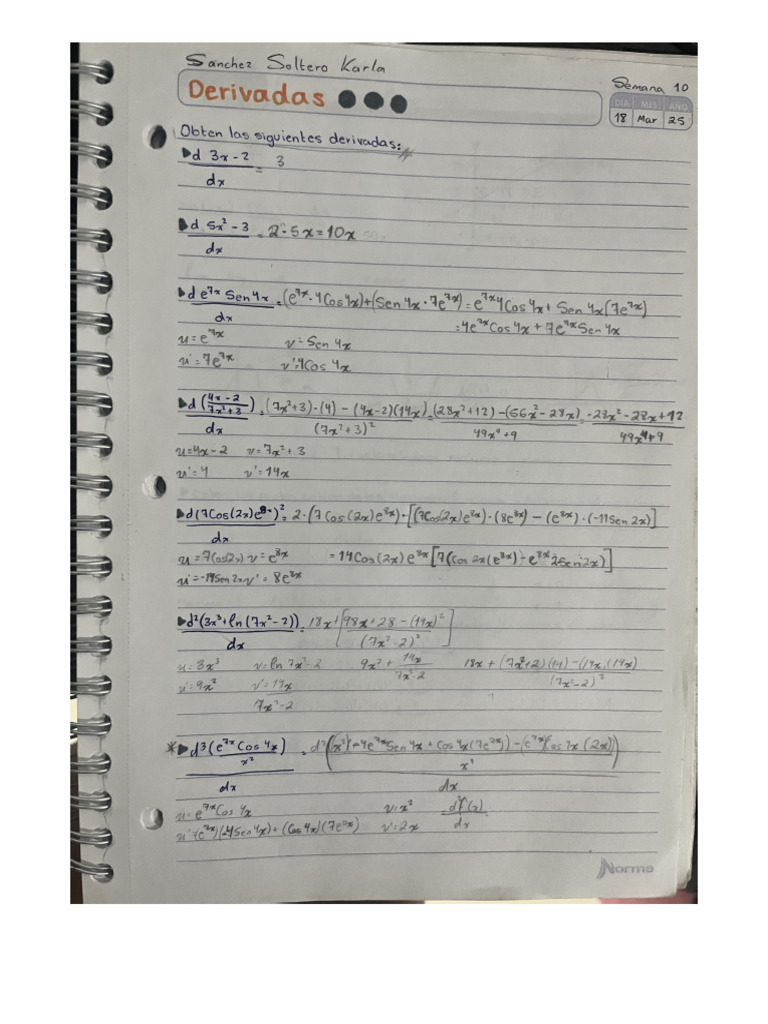 Sanchez Soltero Karla
Semana 10
Derivadas
DIA MES AÑO
18 Mar 25
Obten las siguientes derivadas:
d 3x-2 / dx = 3
d 5x² - 3 / dx = 2·5x = 10x
d e⁷ˣ Sen 4x / dx = (e⁷ˣ·4Cos4x)+(Sen 4x · 7e⁷ˣ) = e⁷ˣ4Cos4x + Sen 4x(7e⁷ˣ)
= 4e⁷ˣCos4x + 7e⁷ˣSen4x
u = e⁷ˣ v = Sen 4x
u' = 7e⁷ˣ v' = 4Cos 4x
d (4x-2 / 7x²+3) / dx = (7x²+3)·(4) - (4x-2)(14x) / (7x²+3)² = (28x²+12)-(56x²-28x) / 49x⁴+9 = -28x²-28x+12 / 49x⁴+9
u=4x-2 v=7x²+3
u'=4 v'=14x
d(7Cos(2x)e⁸ˣ)² / dx = 2·(7Cos(2x)e⁸ˣ)·[(7Cos(2x)e⁸ˣ)·(8e⁸ˣ) - (e⁸ˣ)·(-14Sen 2x)]
u=7Cos(2x) v=e⁸ˣ = 14Cos(2x)e⁸ˣ
u'=-14Sen2x v'= 8e⁸ˣ
d²(3x³+ln(7x²-2)) / dx = 18x+[98x+28-(14x)² / (7x²-2)²]
u=3x³ v=ln 7x²-2 9x²+ 14x / 7x²-2 18x + (7x²+2)(14)-(14x)(14x) / (7x²-2)²
u'=9x² v'=14x / 7x²-2
* d³(e⁷ˣCos4x / x²) / dx = d²((x²)(-4e⁷ˣSen4x + Cos4x(7e⁷ˣ))-(e⁷ˣCos4x(2x)) / x⁴) / dx
u=e⁷ˣCos4x v=x²
u'=(e⁷ˣ)(-4Sen4x)+(Cos4x)(7e⁷ˣ) v'=2x
Norma